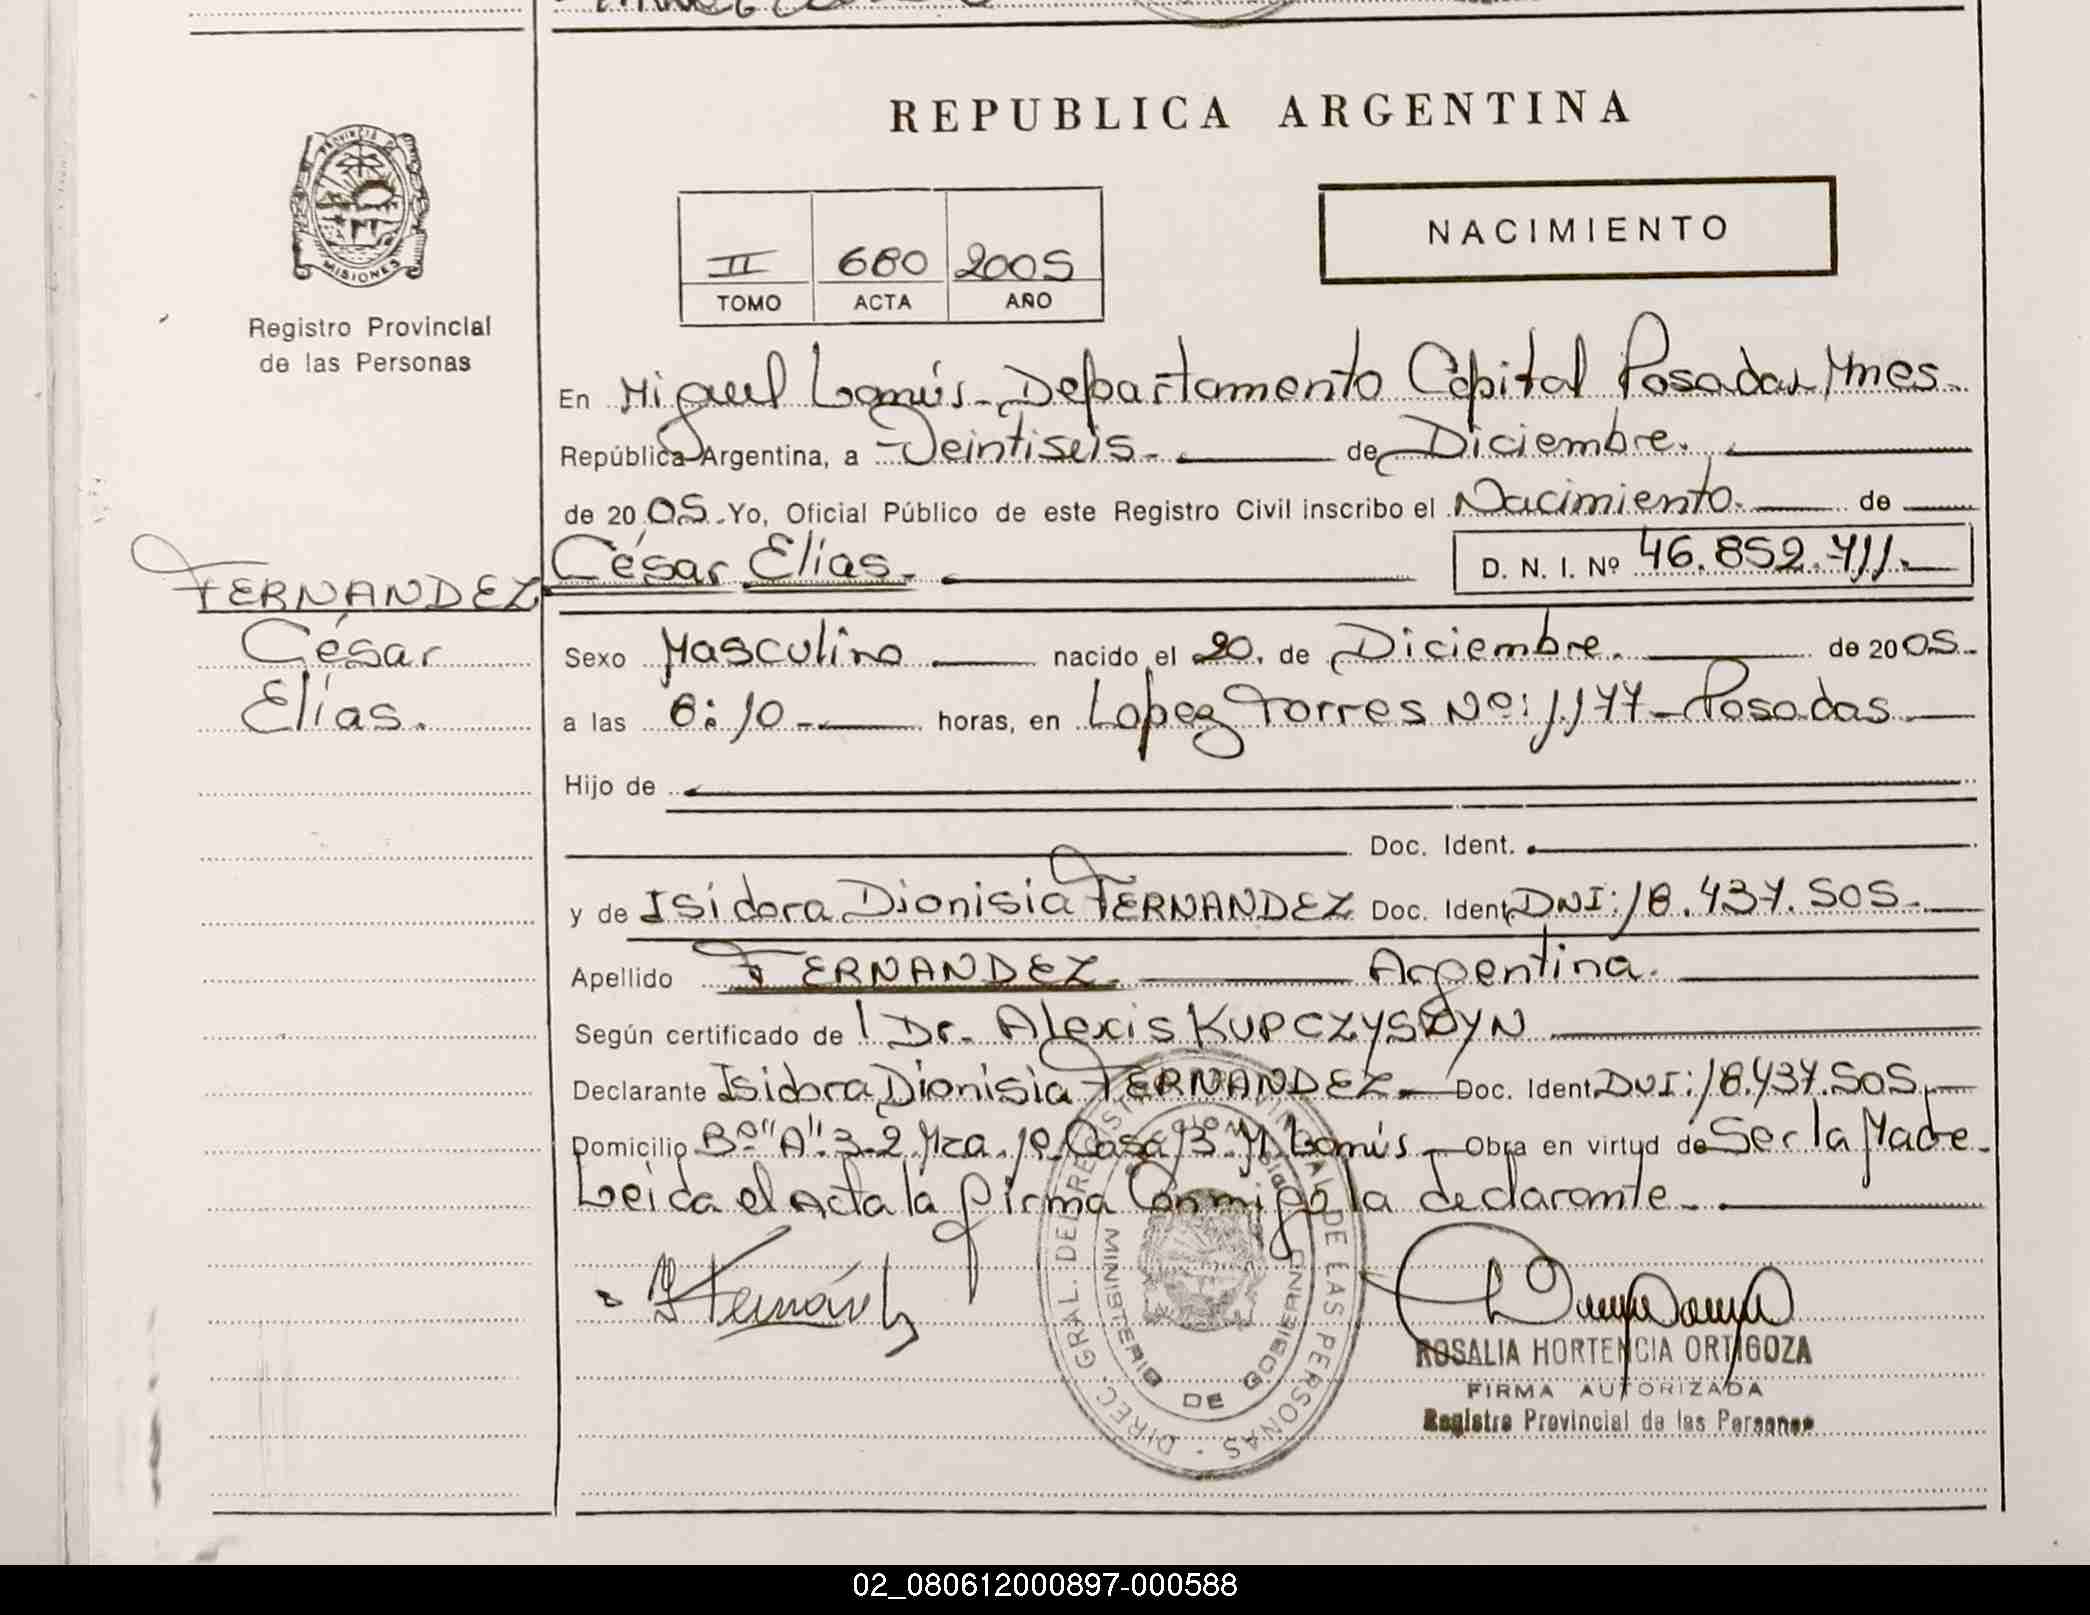 REPUBLICA ARGENTINA
PROVINCIA DE
MISIONES
Registro Provincial
de las Personas
NACIMIENTO
II 680 2005
TOMO ACTA AÑO
En Miguel Lanús - Departamento Capital Posadas Mnes.
República Argentina, a Veintiseis. de Diciembre.
de 2005. Yo, Oficial Público de este Registro Civil inscribo el Nacimiento. de
César Elías. D. N. I. Nº 46.852.711.
FERNANDEZ
César
Elías.
Sexo Masculino nacido el 20. de Diciembre. de 2005.
a las 8:10 horas, en Lopez Torres Nº: 1.177 - Posadas
Hijo de
Doc. Ident.
y de Isidora Dionisia FERNANDEZ Doc. Ident. DNI: 18.437.505.
Apellido FERNANDEZ. Argentina.
Según certificado de Dr. Alexis
Declarante Isidora Dionisia FERNANDEZ. Doc. Ident. DNI: 18.437.505.
Domicilio Bº "A" 3-2 Mza. Casa 13. M Lanús Obra en virtud de Ser la Madre.
Leida el Acta la firma Conmigo la declarante.
Fernández
DIREC. GRAL. DEL REGISTRO PROVINCIAL DE LAS PERSONAS
MINISTERIO DE GOBIERNO
ROSALIA HORTENCIA ORTIGOZA
FIRMA AUTORIZADA
Registro Provincial de las Personas
02_080612000897-000588